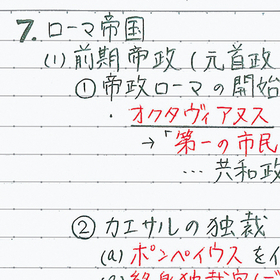 7. ローマ帝国
(1) 前期帝政 (元首政
① 帝政ローマの開始
・オクタヴィアヌス
→「第一の市民
… 共和政
② カエサルの独裁
(a) ポンペイウスを
(a) 終身独裁官(デ